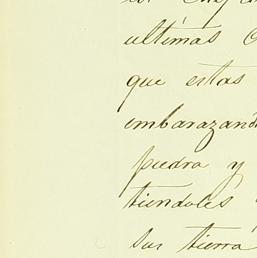 ultimas
que estas
embarazand
piedra y
tiendoles
sus tierra